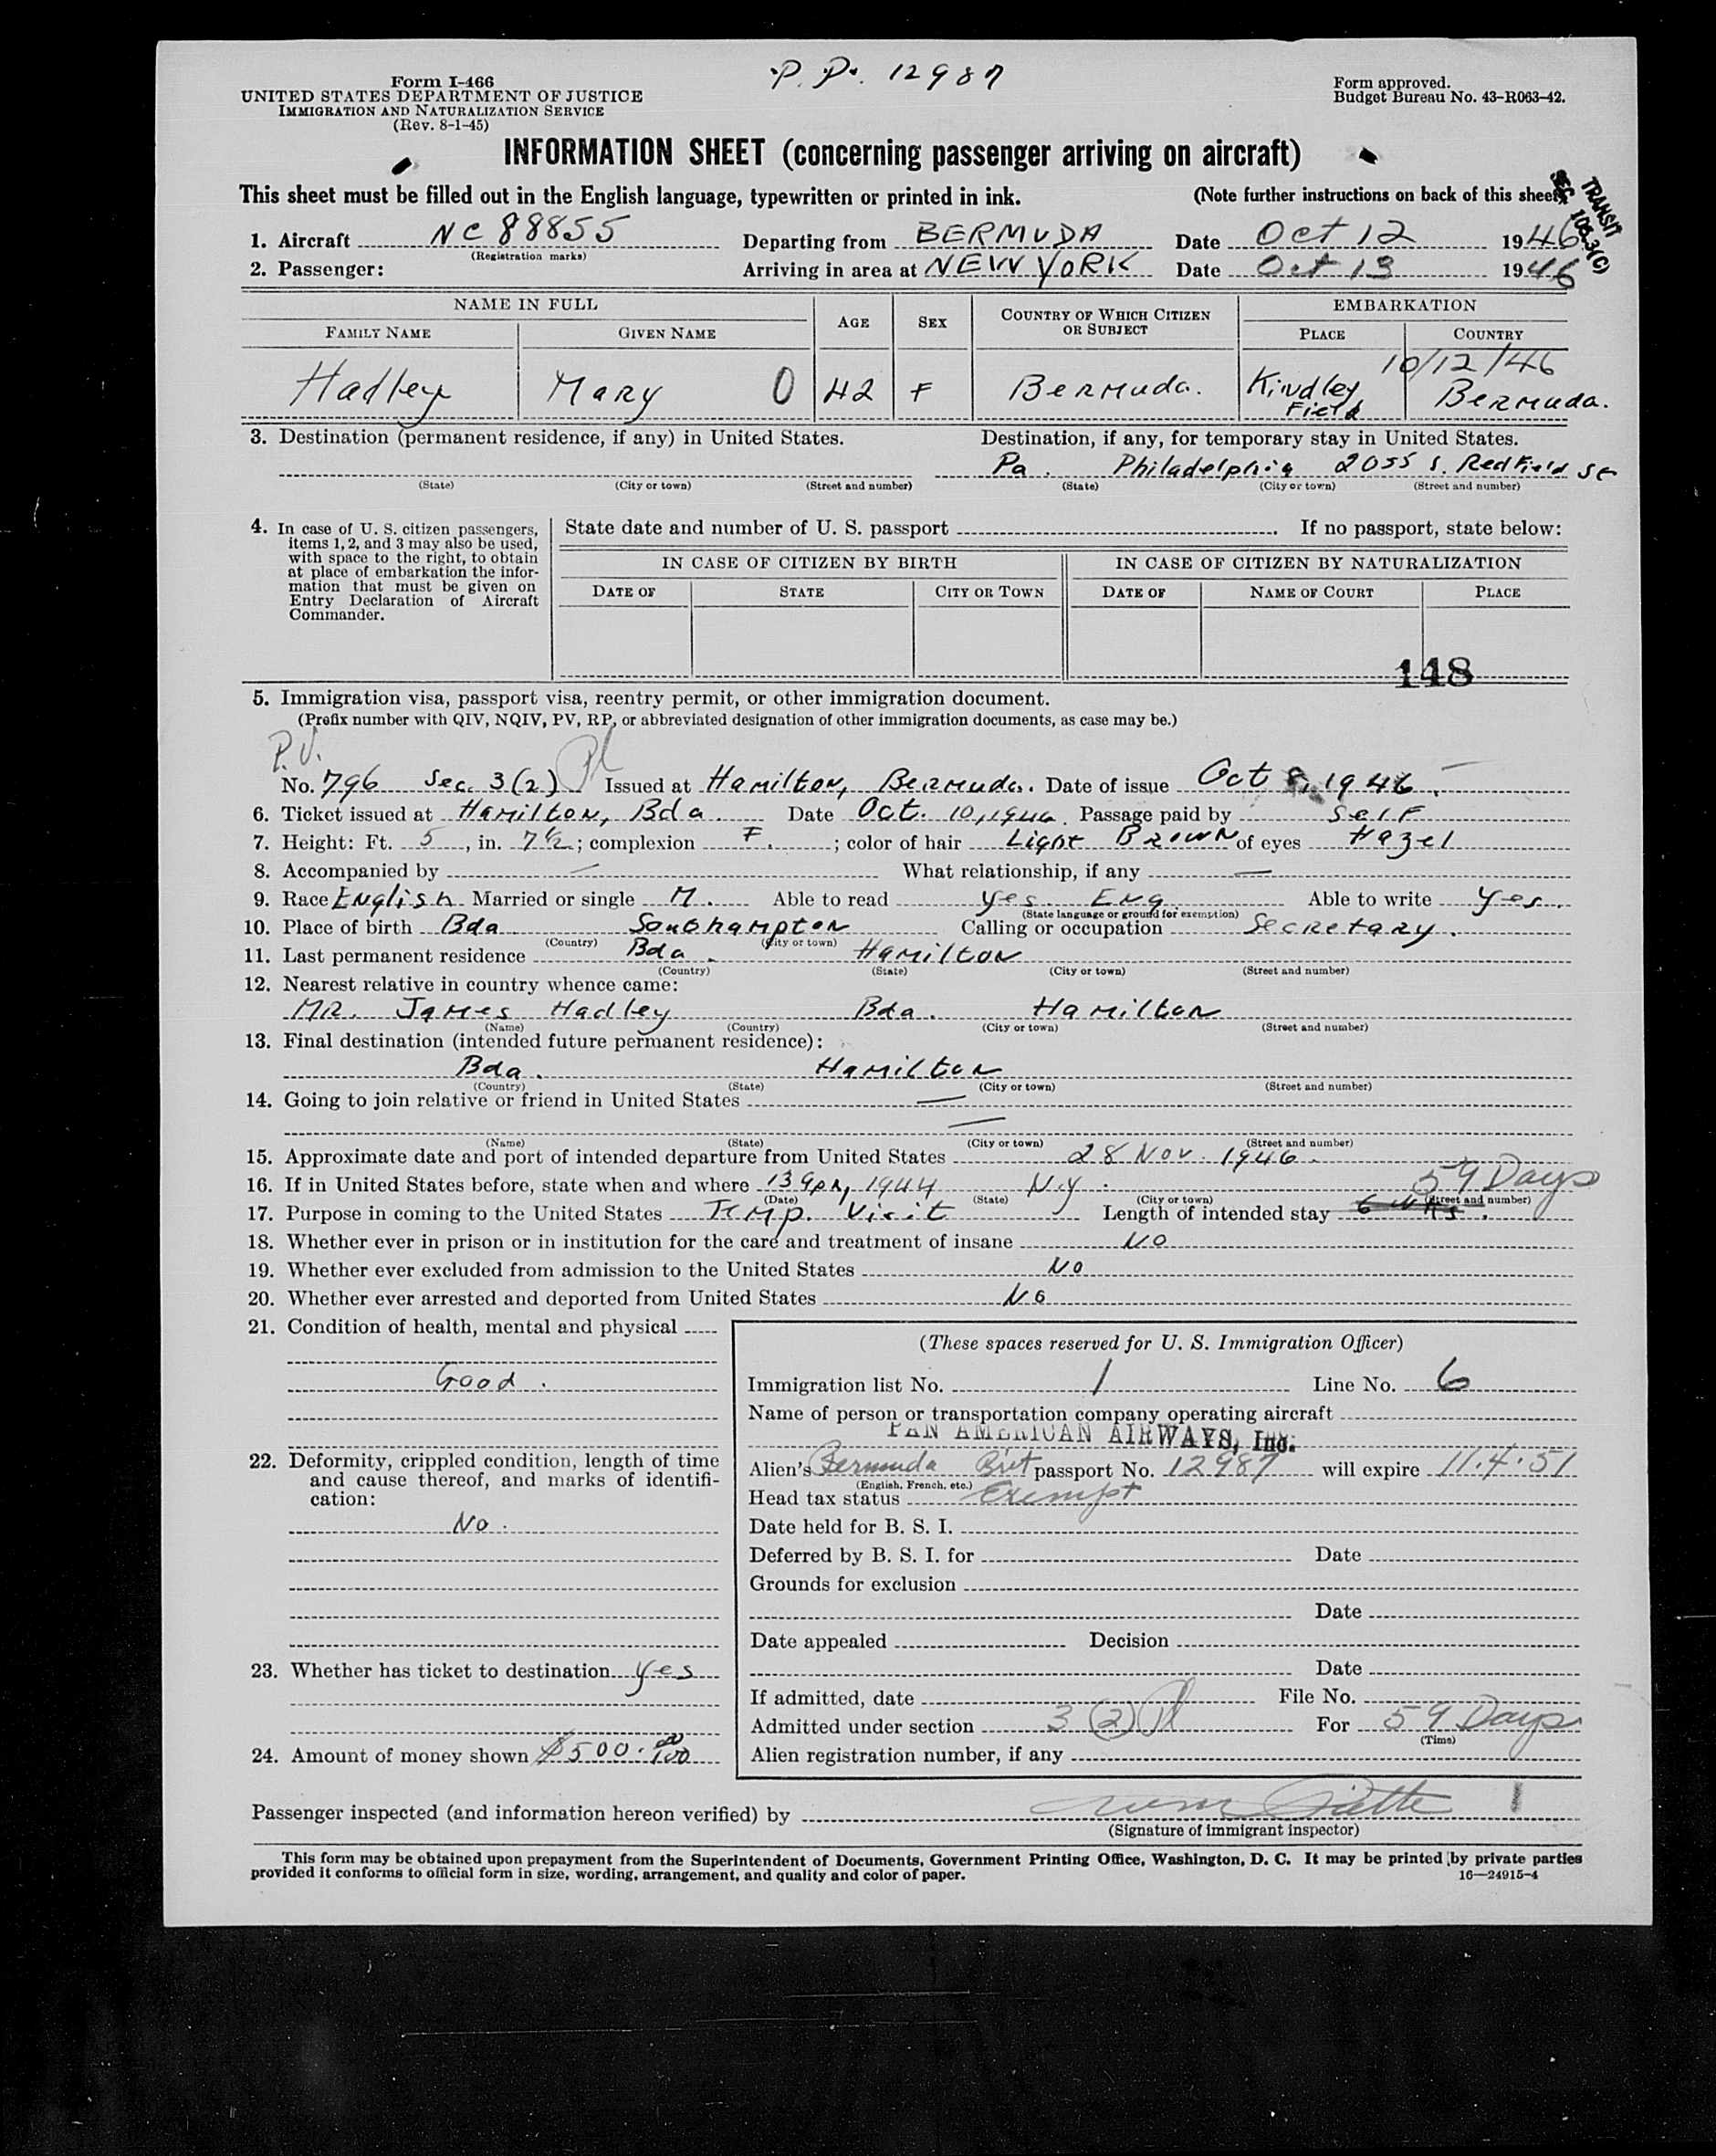 P. P. 12987
Form I-466
UNITED STATES DEPARTMENT OF JUSTICE
IMMIGRATION AND NATURALIZATION SERVICE
(Rev. 8-1-45)
Form approved.
Budget Bureau No. 43-R063-42.
INFORMATION SHEET (concerning passenger arriving on aircraft)
This sheet must be filled out in the English language, typewritten or printed in ink. (Note further instructions on back of this sheet)
TRANSIT
SEC. 105.3(C)
1. Aircraft NC 88855 Departing from BERMUDA Date Oct 12 1946
(Registration marks)
2. Passenger: Arriving in area at NEW YORK Date Oct 13 1946
NAME IN FULL AGE SEX COUNTRY OF WHICH CITIZEN OR SUBJECT EMBARKATION
FAMILY NAME GIVEN NAME PLACE COUNTRY
10/12/46
Hadley Mary O 42 F Bermuda. Kindley Field Bermuda.
3. Destination (permanent residence, if any) in United States. Destination, if any, for temporary stay in United States.
Pa. Philadelphia 2055 S. Redfield St
(State) (City or town) (Street and number) (State) (City or town) (Street and number)
4. In case of U. S. citizen passengers, items 1, 2, and 3 may also be used, with space to the right, to obtain at place of embarkation the information that must be given on Entry Declaration of Aircraft Commander.
State date and number of U. S. passport . If no passport, state below:
IN CASE OF CITIZEN BY BIRTH IN CASE OF CITIZEN BY NATURALIZATION
DATE OF STATE CITY OR TOWN DATE OF NAME OF COURT PLACE
148
5. Immigration visa, passport visa, reentry permit, or other immigration document.
(Prefix number with QIV, NQIV, PV, RP, or abbreviated designation of other immigration documents, as case may be.)
P.V.
No. 796 Sec. 3(2) Issued at Hamilton, Bermuda. Date of issue Oct 8, 1946.
6. Ticket issued at Hamilton, Bda. Date Oct. 10, 1946. Passage paid by Self
7. Height: Ft. 5, in. 7½; complexion F.; color of hair Light Brown of eyes Hazel
8. Accompanied by — What relationship, if any —
9. Race English Married or single M. Able to read yes. Eng. Able to write yes.
(State language or ground for exemption)
10. Place of birth Bda. Southampton Calling or occupation Secretary.
(Country) (City or town)
11. Last permanent residence Bda. Hamilton
(Country) (State) (City or town) (Street and number)
12. Nearest relative in country whence came:
MR. James Hadley Bda. Hamilton
(Name) (Country) (City or town) (Street and number)
13. Final destination (intended future permanent residence):
Bda. Hamilton
(Country) (State) (City or town) (Street and number)
14. Going to join relative or friend in United States —
—
(Name) (State) (City or town) (Street and number)
15. Approximate date and port of intended departure from United States 28 Nov. 1946.
16. If in United States before, state when and where 13 1944 N.Y. 59 Days
(Date) (State) (City or town) (Street and number)
17. Purpose in coming to the United States Temp. Visit Length of intended stay 6 wks.
18. Whether ever in prison or in institution for the care and treatment of insane No
19. Whether ever excluded from admission to the United States No
20. Whether ever arrested and deported from United States No
21. Condition of health, mental and physical
Good.
22. Deformity, crippled condition, length of time and cause thereof, and marks of identification:
No.
23. Whether has ticket to destination yes
24. Amount of money shown $500.00/100
(These spaces reserved for U. S. Immigration Officer)
Immigration list No. 1 Line No. 6
Name of person or transportation company operating aircraft
PAN AMERICAN AIRWAYS, Inc.
Alien's Bermuda Brit passport No. 12987 will expire 11.4.51
(English, French, etc.)
Head tax status Exempt
Date held for B. S. I.
Deferred by B. S. I. for Date
Grounds for exclusion
Date
Date appealed Decision
Date
If admitted, date File No.
Admitted under section 3 (2) For 59 Days
(Time)
Alien registration number, if any
Passenger inspected (and information hereon verified) by
(Signature of immigrant inspector)
This form may be obtained upon prepayment from the Superintendent of Documents, Government Printing Office, Washington, D. C. It may be printed by private parties
provided it conforms to official form in size, wording, arrangement, and quality and color of paper. 16—24915-4